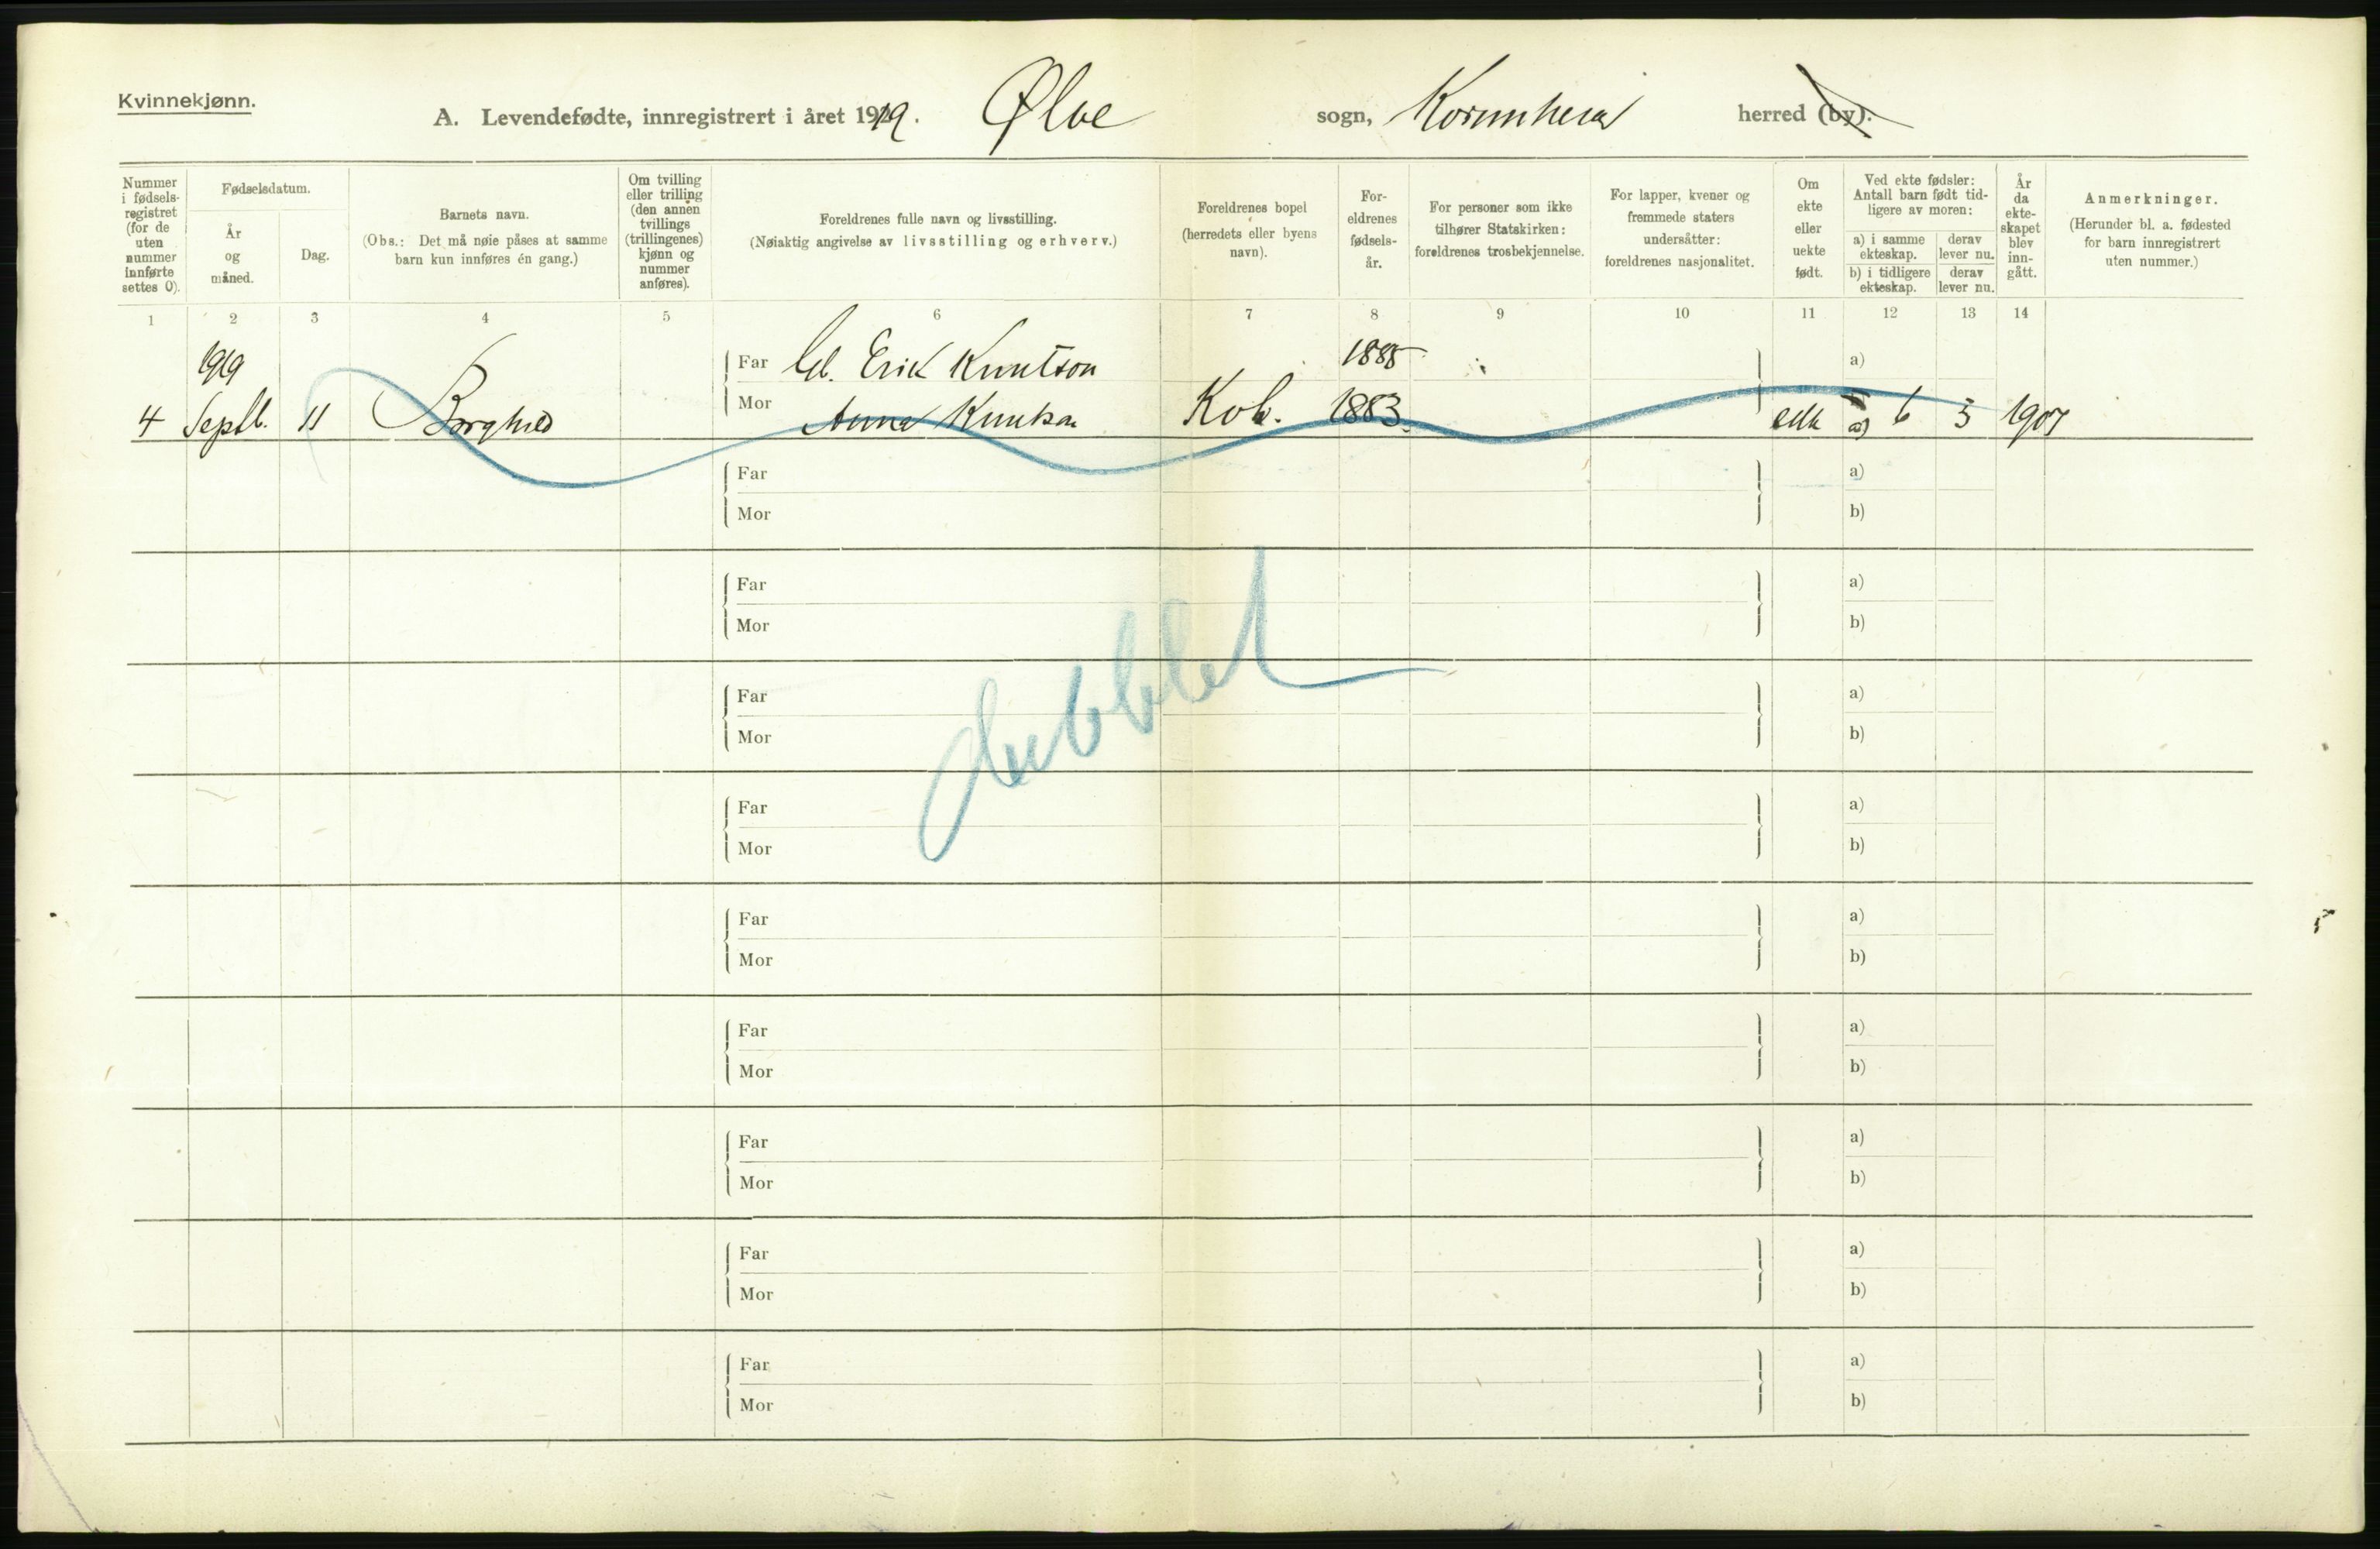 Kvinnekjønn.
A. Levendefødte, innregistrert i året 1919. Ølve sogn, Kvinnherad herred (by).
Nummer i fødselsregistret (for de uten nummer innførte settes 0).
Fødselsdatum.
År og måned.
Dag.
Barnets navn.
(Obs.: Det må nøie påses at samme barn kun innføres én gang.)
Om tvilling eller trilling (den annen tvillings (trillingenes) kjønn og nummer anføres).
Foreldrenes fulle navn og livsstilling.
(Nøiaktig angivelse av livsstilling og erhverv.)
Foreldrenes bopel (herredets eller byens navn).
Foreldrenes fødselsår.
For personer som ikke tilhører Statskirken: foreldrenes trosbekjennelse.
For lapper, kvener og fremmede staters undersåtter: foreldrenes nasjonalitet.
Om ekte eller uekte født.
Ved ekte fødsler: Antall barn født tidligere av moren:
a) i samme ekteskap. derav lever nu.
b) i tidligere ekteskap. derav lever nu.
År da ekteskapet blev inngått.
Anmerkninger.
(Herunder bl. a. fødested for barn innregistrert uten nummer.)
1 2 3 4 5 6 7 8 9 10 11 12 13 14
1919 Far Erik Knutson 1885 a)
4 Septb. 11 Borghild Mor Anna Knutson 1883. a) 6 5 1907
Far a)
Mor b)
Far a)
Mor b)
Far a)
Mor b)
Far a)
Mor b)
Far a)
Mor b)
Far a)
Mor b)
Far a)
Mor b)
Far a)
Mor b)
Far a)
Mor b)
dubblet